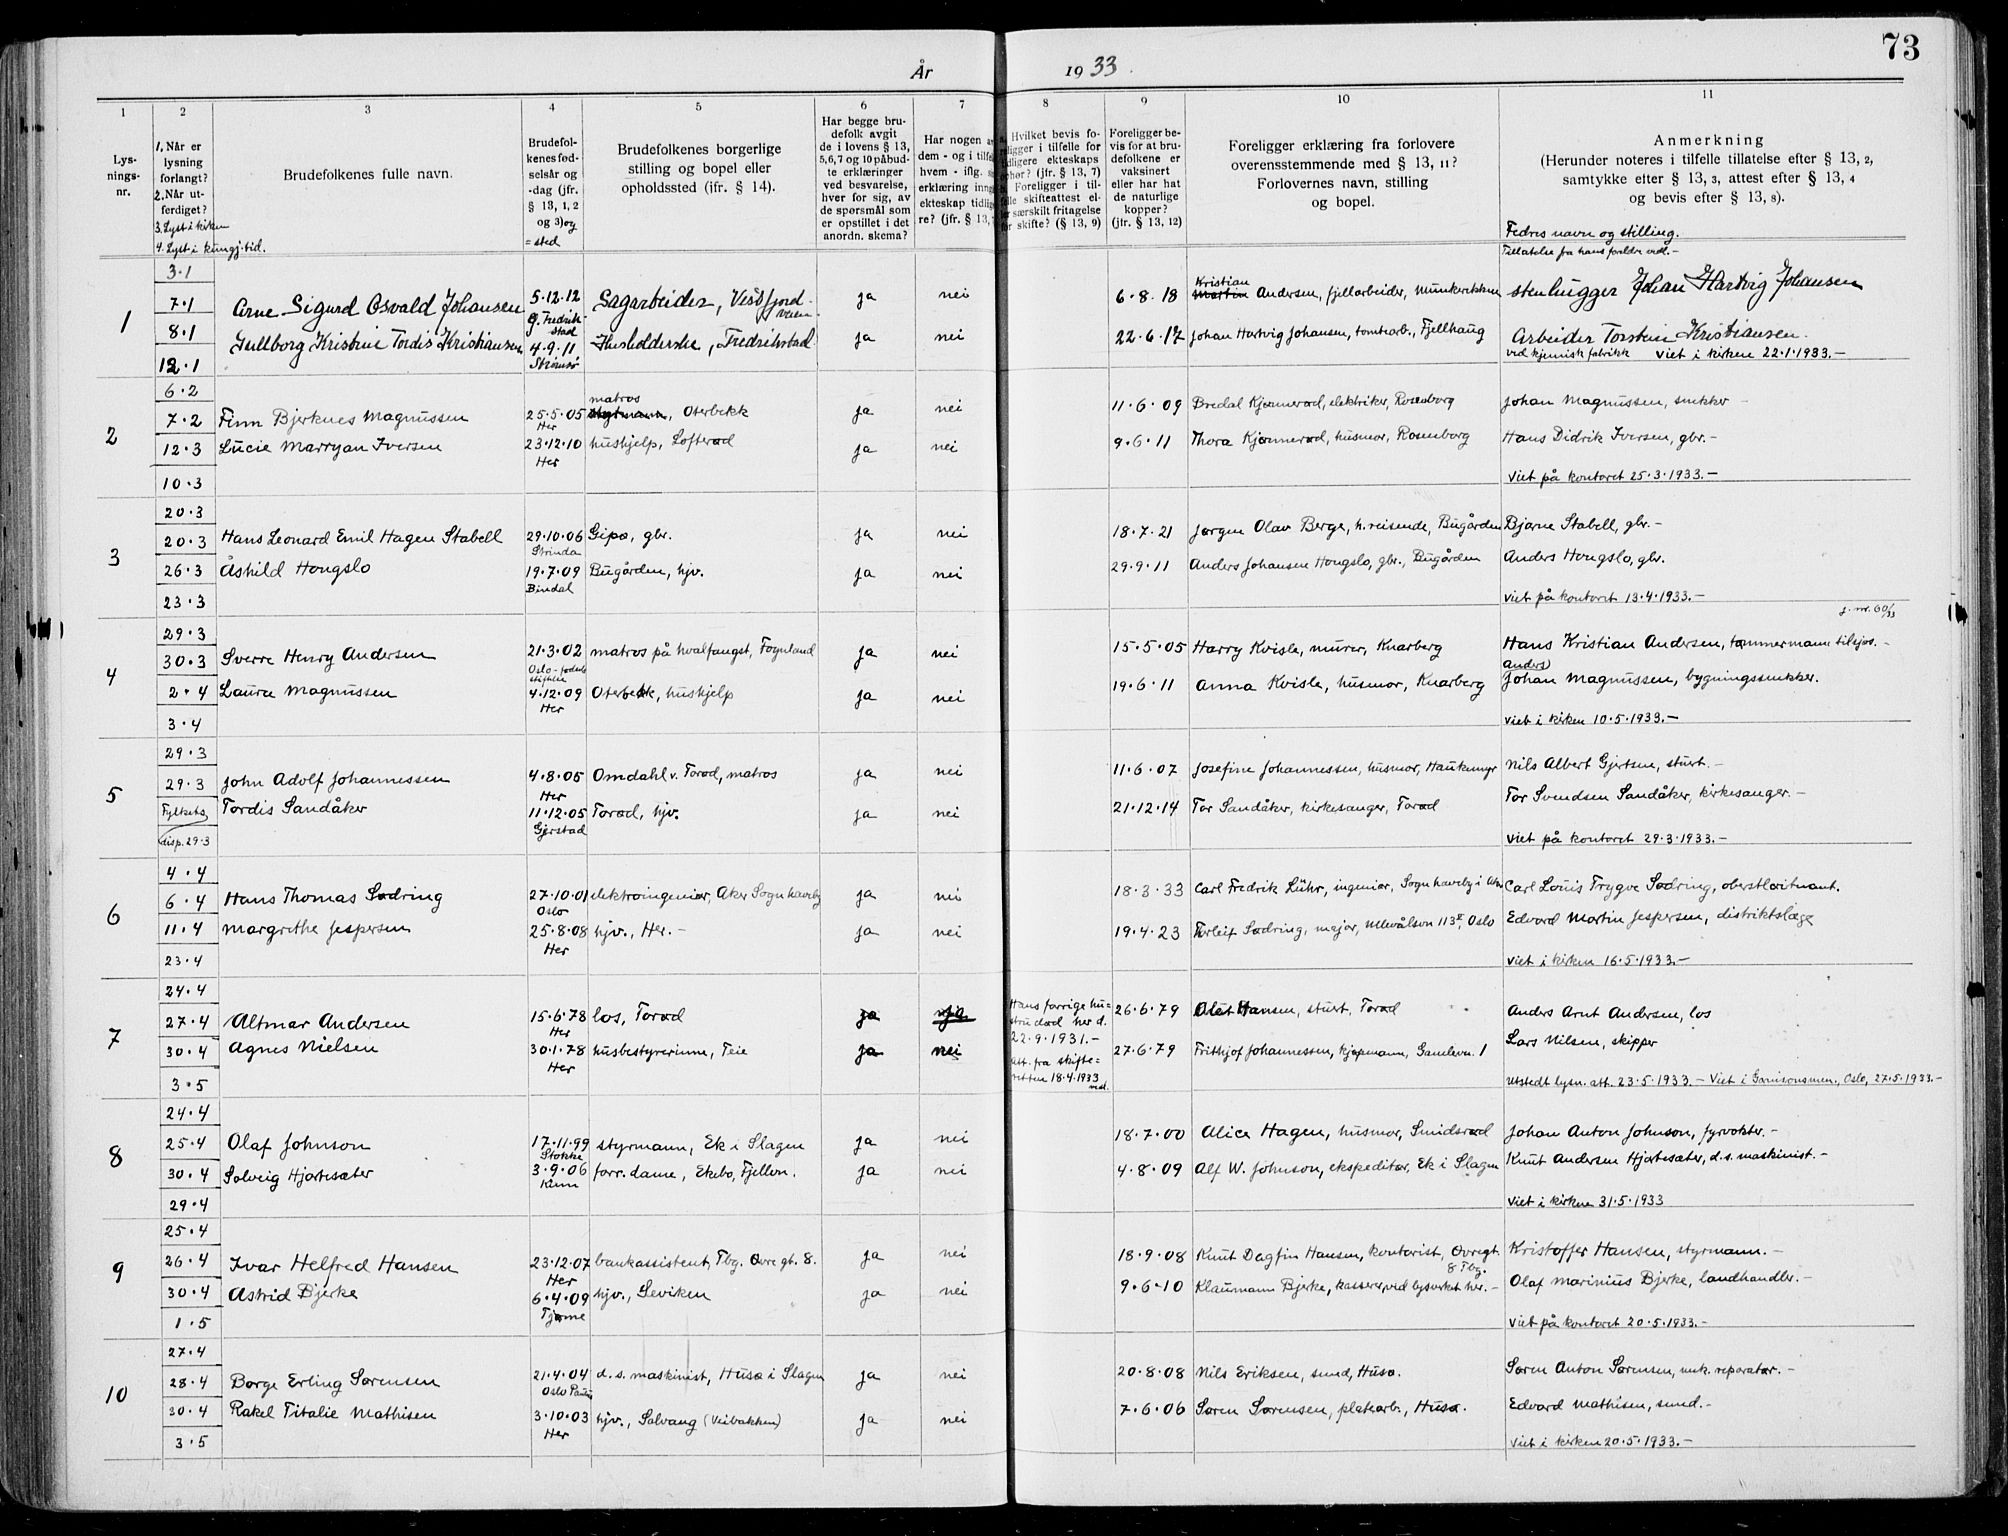 73
År 1933.
1 2 3 4 5 6 7 8 9 10 11
Lysningsnr.
1. Når er lysning forlangt? 2. Når utferdiget? 3. Lyst i kirken 4. Lyst i kungj.tid.
Brudefolkenes fulle navn.
Brudefolkenes fødselsår og -dag (jfr. § 13, 1, 2 og 3) og = sted
Brudefolkenes borgerlige stilling og bopel eller opholdssted (jfr. § 14).
Har begge brudefolk avgit de i lovens § 13, 5, 6, 7 og 10 påbudte erklæringer ved besvarelse, hver for sig, av de spørsmål som er opstillet i det anordn. skema?
Foreligger bevis for at brudefolkene er vaksinert eller har hat de naturlige kopper? (jfr. § 13, 12)
Foreligger erklæring fra forlovere overensstemmende med § 13, 11? Forlovernes navn, stilling og bopel.
Anmerkning (Herunder noteres i tilfelle tillatelse efter § 13, 2, samtykke efter § 13, 3, attest efter § 13, 4 og bevis efter § 13, 8).
Fedres navn og stilling.
Tillatelse fra hans foreldre vedl.-
1
3.1
7.1 Arne Sigurd Osvald Johansen 5.12.12 Sagarbeider, ja nei 6.8.18 Kristian Andersen, fjellarbeider, Munkerekkene stenhugger Johan Hartvig Johansen
8.1 Gullborg Kristine Tordis Kristiansen 4.9.11 Husholderske, Fredrikstad ja nei 22.6.17 Johan Hartvig Johansen, tomtearb., Fjellhaug Arbeider Torstein Kristiansen.
12.1 Strømsø ved kjemisk fabrikk Viet i kirken 22.1.1933.-
2
6.2
7.2 Finn Bjerknes Magnussen 25.5.05 Her matros styrmann, Oterbekk ja nei 11.6.09 Bredal Kjønnerød, elektriker, Rosenborg Johan Magnussen, snekker -
12.3 Lucie Marryan Iversen 23.12.10 Her hushjelp, Lofterød ja nei 9.6.11 Thora Kjønnerød, husmor, Rosenborg Hans Didrik Iversen, gbr.-
10.3 Viet på kontoret 25.3.1933.-
3
20.3
20.3 Hans Leonard Emil Hagen Stabell 29.10.06 Strinda Gipø, gbr. ja nei 18.7.21 Jørgen Olav Berge, h.reisende, Bugården Bjarne Stabell, gbr.-
26.3 Åshild Hongslo 19.7.09 Bindal Bugården, hjv. ja nei 29.9.11 Anders Johansen Hongslo, gbr., Bugården Anders Hongslo, gbr.
23.3 Viet på kontoret 13.4.1933.-
j.nr. 60/33
4
29.3
30.3 Sverre Henry Andersen 21.3.02 matros på hvalfangst, Føynland ja nei 15.5.05 Harry Kvisle, murer, Knarberg Hans Kristian Andersen, tømmermann tilsjøs.-
2.4 Laura Magnussen 4.12.09 Her Oterbekk, hushjelp ja nei 19.6.11 Anna Kvisle, husmor, Knarberg Anders Johan Magnussen, bygningssnekker.
3.4 Viet i kirken 10.5.1933.-
5
29.3
29.3 John Adolf Johannessen 4.8.05 Her Omdahl v. Torød, matros ja nei 11.6.07 Josefine Johannessen, husmor, Haukemyr Nils Albert Gjertsen, stuert.-
Fylkets Tordis Sandåker 11.12.05 Gjerstad Torød, hjv. ja nei 21.12.14 Tor Sandåker, kirkesanger, Torød Tor Svendsen Sandåker, kirkesanger.-
disp. 29.3 Viet på kontoret 29.3.1933.-
6
4.4
6.4 Hans Thomas Sødring 27.10.01 Oslo elektroingeniør, Aker Sogn haveby ja nei 18.3.33 Carl Fredrik Lühr, ingeniør, Sogn haveby i Aker Carl Louis Trygve Sødring, oberstløitnant.
11.4 Margrethe Jespersen 25.8.08 Her hjv., Her.- ja nei 19.4.23 Thorleif Sødring, major, Ullevålsvn 113 II, Oslo Edvard Martin Jespersen, distriktslæge
23.4 Viet i kirken 16.5.1933.-
7
24.4
27.4 Altmar Andersen 15.6.78 Her los, Torød ja Hans forrige hustru død her d. 22.9.1931.- 26.6.79 Olaf Hansen, stuert, Torød Anders Arnt Andersen, los
30.4 Agnes Nielsen 30.1.78 Her husbestyrerinne, Teie ja nei Att. fra skifteretten 18.4.1933 vedl. 27.6.79 Frithjof Johannessen, kjøpmann, Gamlevn. 1 Lars Nilsen, skipper
3.5 Utstedt lysn. att. 23.5.1933.- Viet i Garnisonsmen., Oslo, 27.5.1933.-
8
24.4
25.4 Olaf Johnson 17.11.99 Stokke styrmann, Ek i Slagen ja nei 18.7.00 Alice Hagen, husmor, Smidsrød Johan Anton Johnson, fyrvokter.-
30.4 Solveig Hjortesæter 3.9.06 Kinn forr. dame, Ekebo, Fjellvn. ja nei 4.8.09 Alf W. Johnson, ekspeditør, Ek i Slagen Knut Andersen Hjortesæter, d.s. maskinist.-
29.4 Viet i kirken 31.5.1933
9
25.4
26.4 Ivar Helfred Hansen 23.12.07 Her bankassistent, Tbg. Øvre gt. 8. ja nei 18.9.08 Knut Dagfin Hansen, kontorist, Øvregt. 8 Tbg. Kristoffer Hansen, styrmann.-
30.4 Astrid Bjerke 6.4.09 Tjøme hjv., Seviken ja nei 9.6.10 Klaumann Bjerke, kasserer, ved lysverket her.- Olaf Marinius Bjerke, landhandler.-
1.5 Viet på kontoret 20.5.1933.-
10
27.4
28.4 Børge Erling Sørensen 21.4.04 d.s. maskinist, Husø i Slagen ja nei 20.8.08 Nils Eriksen, smed, Husø. Søren Anton Sørensen, mek. reparatør.-
30.4 Rakel Titalie Mathisen 3.10.03 Her hjv., Solvang (Veibakken) ja nei 7.6.06 Søren Sørensen, platearb., Husø. Edvard Mathisen, smed.-
3.5 Viet i kirken 20.5.1933.-